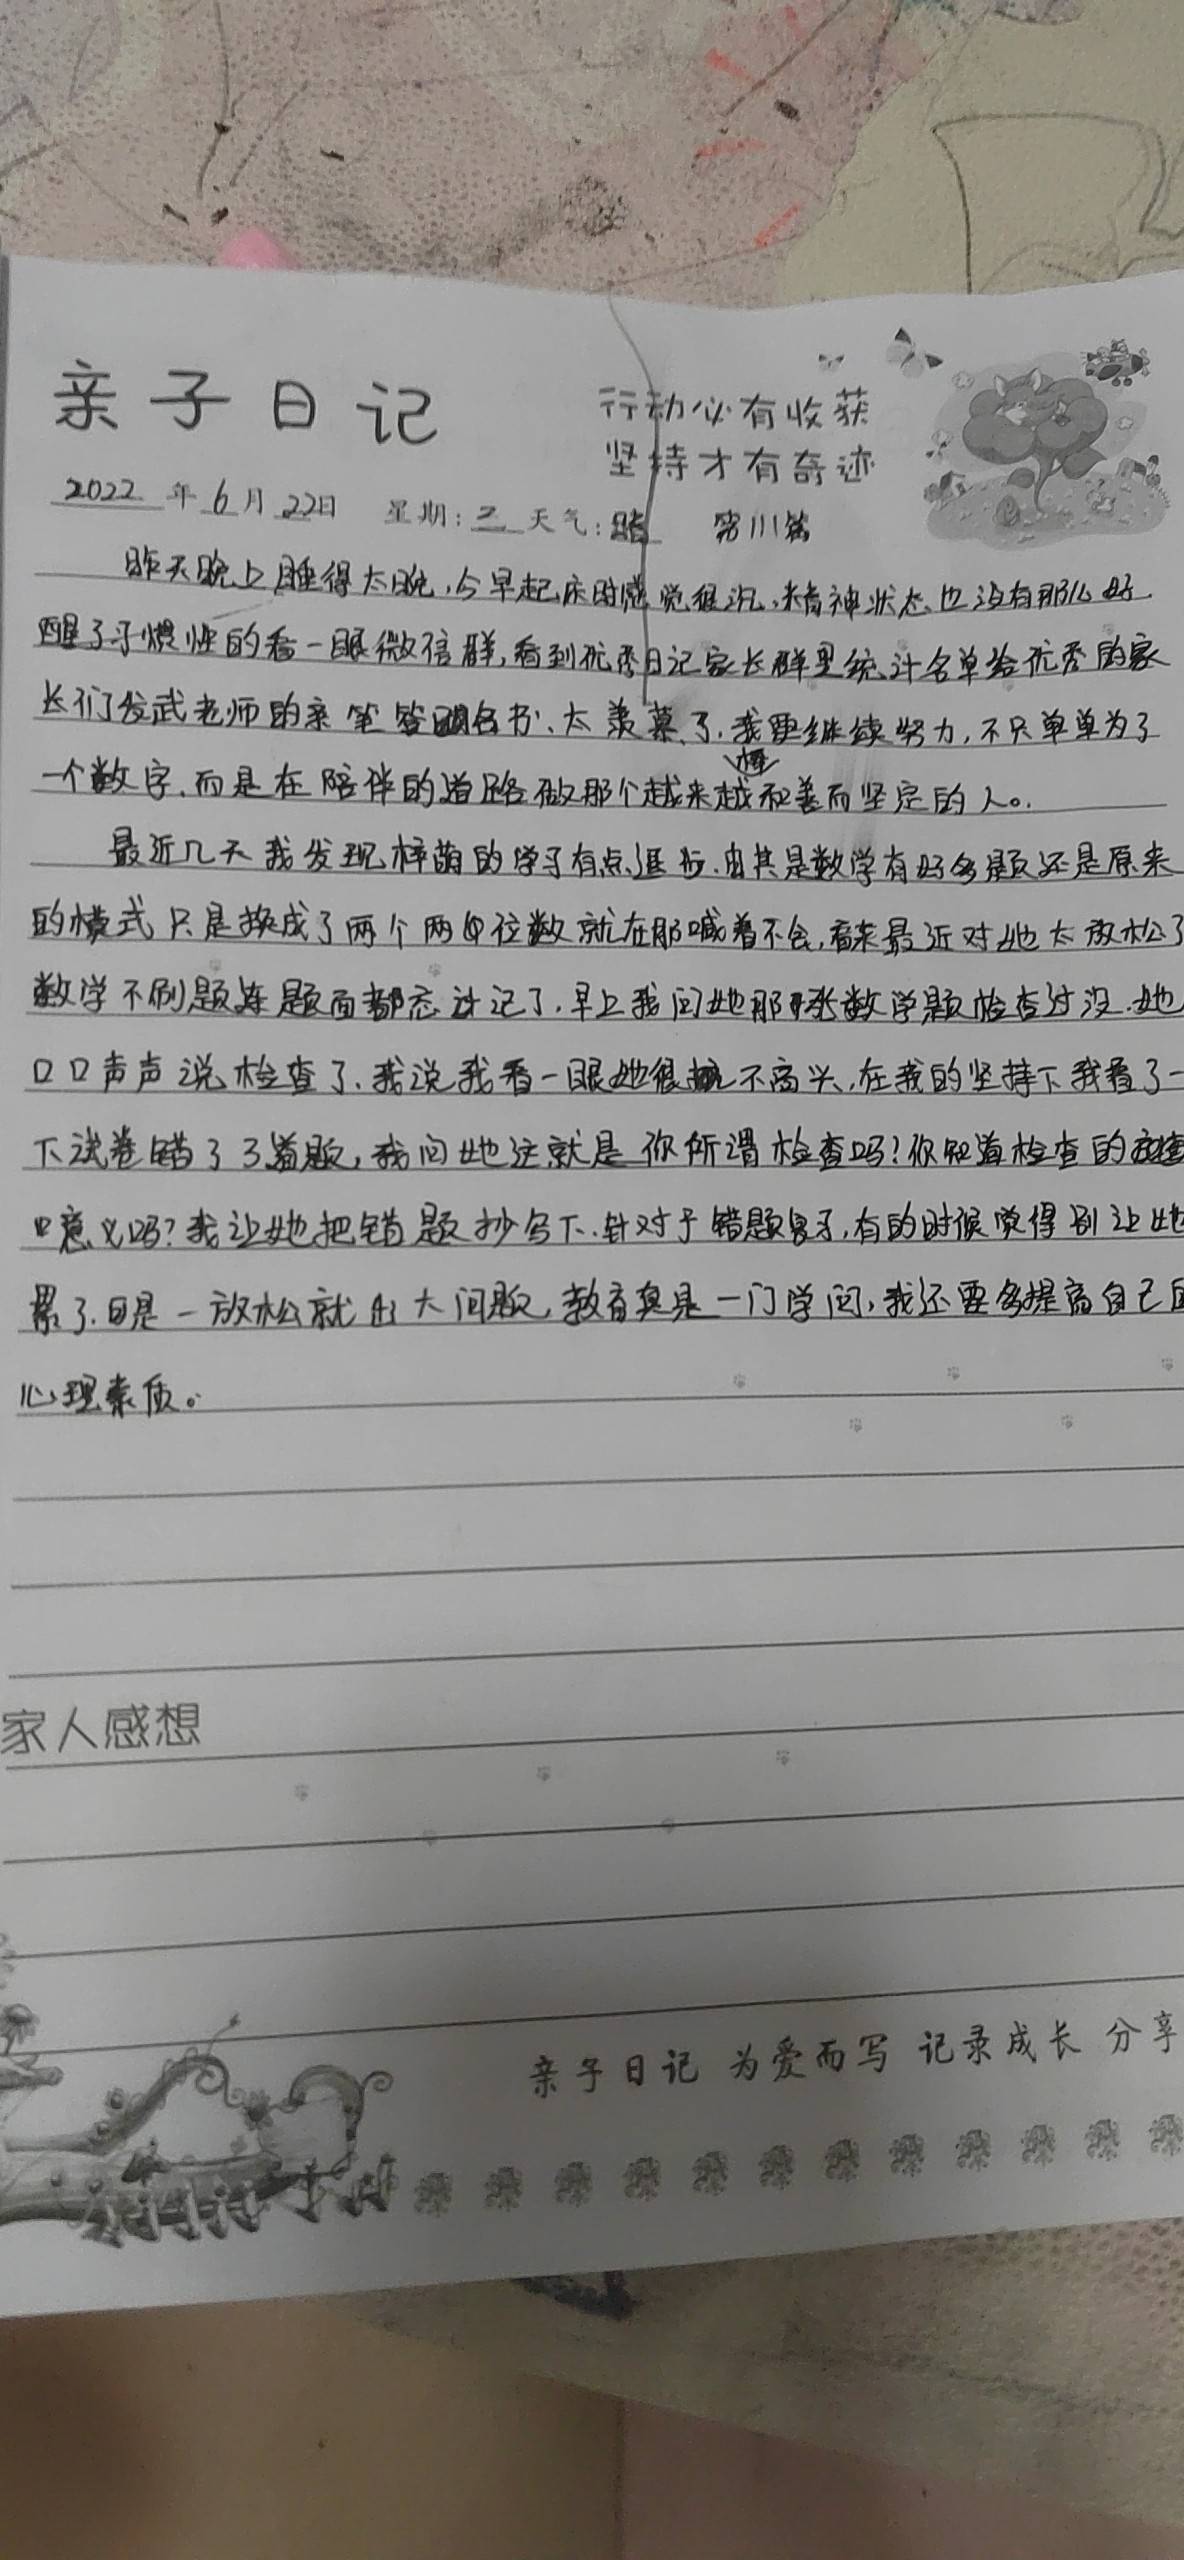 亲子日记
行动必有收获
坚持才有奇迹
2022年6月22日 星期:三 天气:晴 第111篇
昨天晚上睡得太晚,今早起床时感觉很沉,精神状态也没有那么好
醒了习惯性的看一眼微信群,看到优秀日记家长群里统计名单给优秀的家
长们发武老师的亲笔签名书、太羡慕了,我要继续努力,不只单单为了
一个数字,而是在陪伴的道路做那个越来越和善而坚定的人。
最近几天我发现梓萌的学习有点退步,由其是数学有好多题还是原来
的模式只是换成了两个两位数就在那喊着不会,看来最近对她太放松了
数学不刷题连题面都忘记了,早上我问她那张数学题检查过没,她
口口声声说检查了,我说我看一眼她很不高兴,在我的坚持下我看了一
下试卷错了3道题,我问她这就是你所谓检查吗?你知道检查的
意义吗?我让她把错题抄写下,针对于错题复习,有的时候觉得别让她
累了,但是一放松就出大问题,教育真是一门学问,我还要多提高自己
心理素质。
家人感想
亲子日记 为爱而写 记录成长 分享